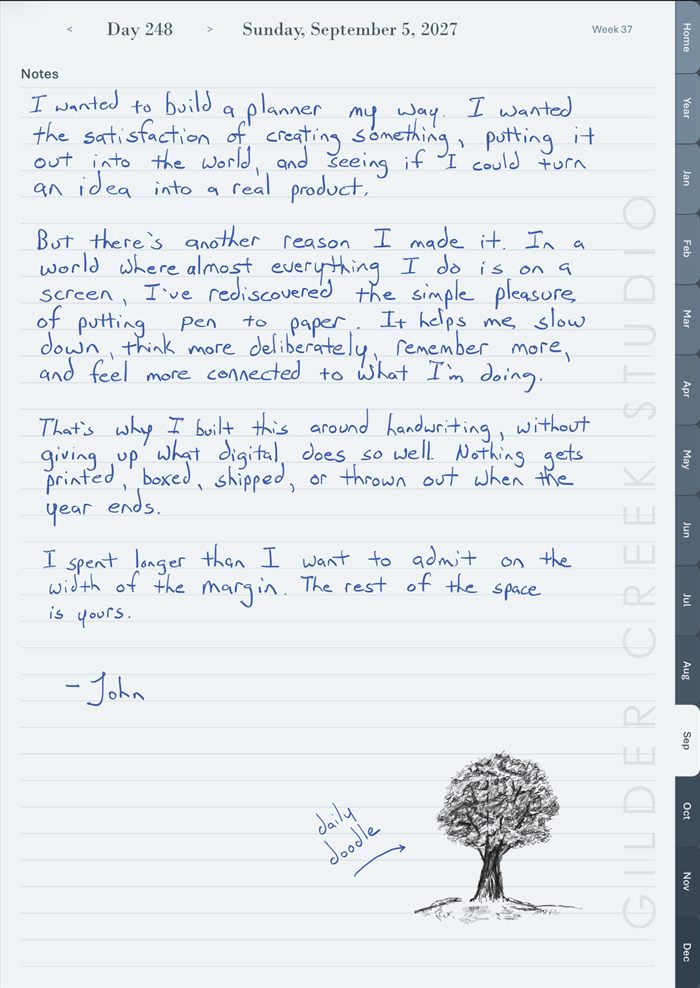 < Day 248 > Sunday, September 5, 2027 Week 37
Notes
I wanted to build a planner my way. I wanted
the satisfaction of creating something, putting it
out into the world, and seeing if I could turn
an idea into a real product.
But there's another reason I made it. In a
world where almost everything I do is on a
screen, I've rediscovered the simple pleasure
of putting pen to paper. It helps me slow
down, think more deliberately, remember more,
and feel more connected to what I'm doing.
That's why I built this around handwriting, without
giving up what digital does so well. Nothing gets
printed, boxed, shipped, or thrown out when the
year ends.
I spent longer than I want to admit on the
width of the margin. The rest of the space
is yours.
- John
daily
doodle
GILDER CREEK STUDIO
Home
Year
Jan
Feb
Mar
Apr
May
Jun
Jul
Aug
Sep
Oct
Nov
Dec